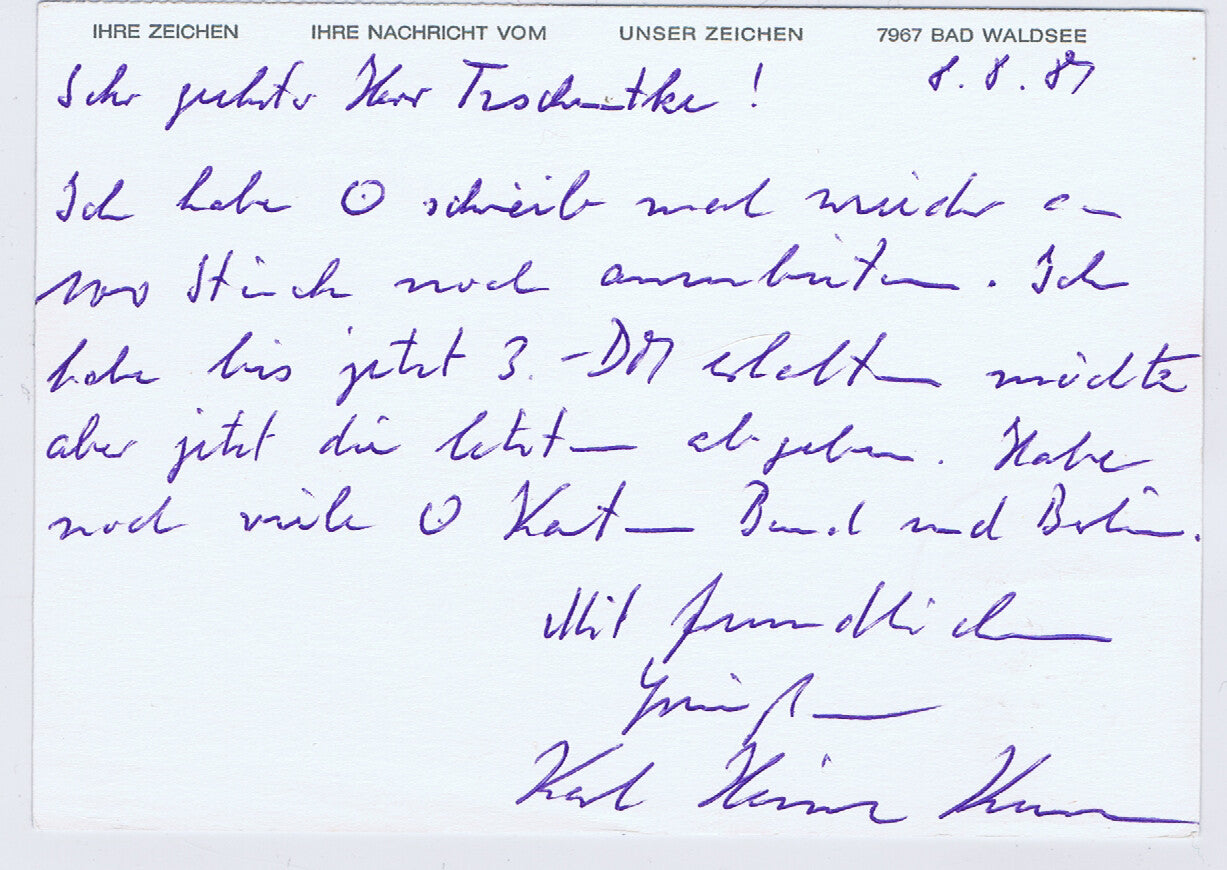 IHRE ZEICHEN IHRE NACHRICHT VOM UNSER ZEICHEN 7967 BAD WALDSEE
8. 8. 87
Sehr geehrter Herr !
Ich habe schreib mal wieder an
100 Stück noch anzubieten. Ich
habe bis jetzt 3.-DM erhalten möchte
aber jetzt die letzten abgeben. Habe
noch viele Karten Bund und Berlin.
Mit freundlichen
Grüßen
Karl Heinz